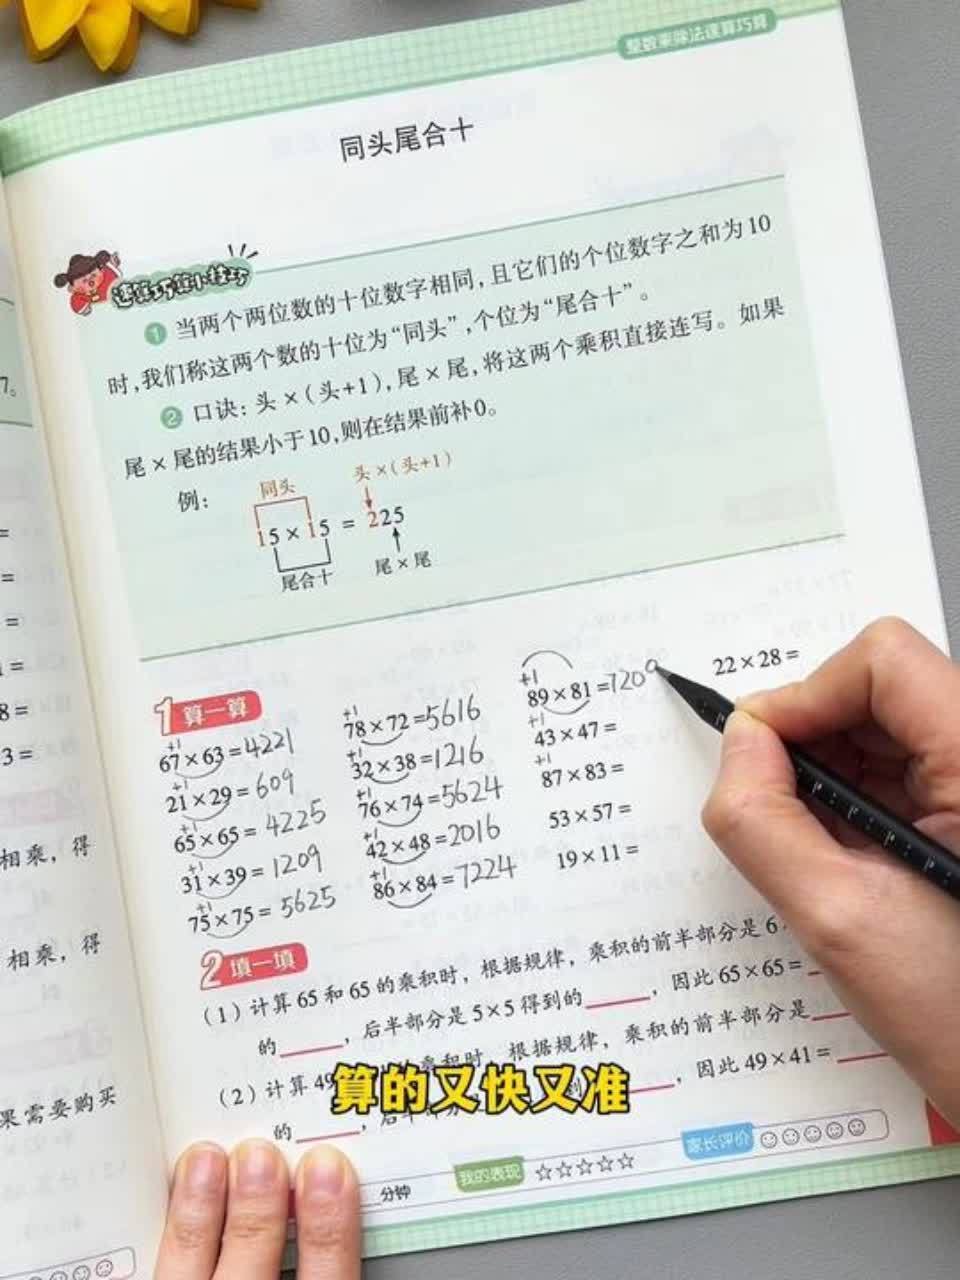 整数乘除法速算巧算
同头尾合十
速算巧算小技巧
1 当两个两位数的十位数字相同，且它们的个位数字之和为10
时，我们称这两个数的十位为“同头”，个位为“尾合十”。
2 口诀：头×(头+1)，尾×尾，将这两个乘积直接连写。如果
尾×尾的结果小于10，则在结果前补0。
例：
同头
头×(头+1)
15×15=225
尾合十
尾×尾
1 算一算
+1
67×63=4221
+1
21×29=609
+1
65×65=4225
+1
31×39=1209
+1
75×75=5625
+1
78×72=5616
+1
32×38=1216
+1
76×74=5624
+1
42×48=2016
+1
86×84=7224
+1
89×81=7209
+1
43×47=
+1
87×83=
53×57=
19×11=
22×28=
2 填一填
(1)计算65和65的乘积时，根据规律，乘积的前半部分是6
的____，后半部分是5×5得到的____，因此65×65=
(2)计算49 乘积时，根据规律，乘积的前半部分是
的____，后半 到____，因此49×41=
算的又快又准
分钟
我的表现 ☆☆☆☆☆
家长评价
7。
=
=
=
1=
8=
3=
相乘，得
相乘，得
果需要购买